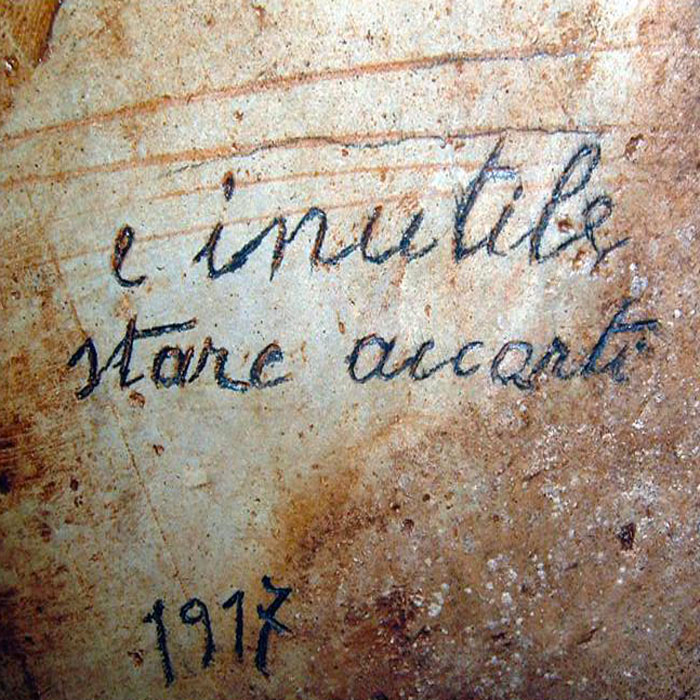 e inutile
stare accorti
1917